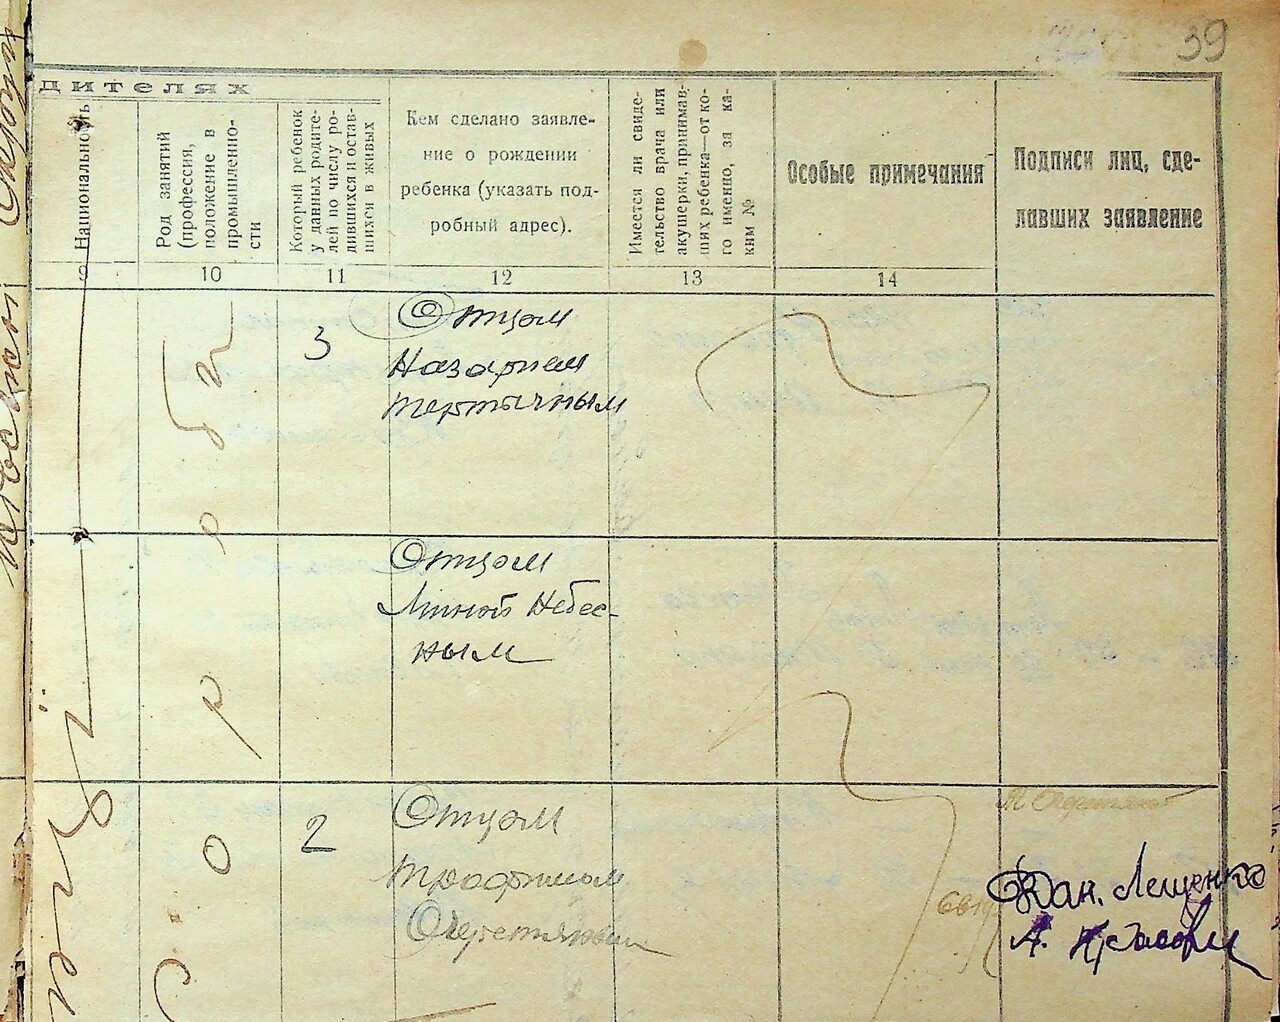 39
дителях
Национальность
Род занятий
(профессия,
положение в
промышленно-
сти
Который ребенок
у данных родите-
лей по числу ро-
дившихся и остав-
шихся в живых
Кем сделано заявле-
ние о рождении
ребенка (указать под-
робный адрес).
Имеется ли свиде-
тельство врача или
акушерки, принимав-
ших ребенка—от ко-
го именно, за ка-
ким №
Особые примечания
Подписи лиц, сде-
лавших заявление
9 10 11 12 13 14
3
Отцом
Назарием
Тертычным
Отцом
Миной Небес-
ным
2
Отцом
Трофимом
Очеретяным
Дан. Лещенко
А.